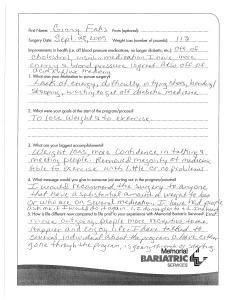 First Name: Ginny Fahs From (optional)
Surgery Date: Sept. 28, 2009 Weight Loss (number of pounds) 113
Improvements in health (i.e. off blood pressure medications, no longer diabetic, etc.) Off of
cholesterol, insulin medication I have more
energy & blood pressure is great. Also off of
medicine
1. What was your motivation to pursue surgery?
Lack of energy, difficulty in tying shoes, bending/
sleeping, wanting to get off diabetic medicine
2. What were your goals at the start of the program/process?
To lose weight & exercise.
3. What are your biggest accomplishments?
Weight loss, more confidence in talking &
meeting people. Removed majority of medicine
able to exercise with little or no problems.
4. What message would you give to someone just starting out in the program/process?
I would recommend the surgery to anyone
that have a substantial amount of weight to lose
or who are on several medication. I have had people
ask me if I would do it again. I
5. How is life different now compared to life prior to your experience with Memorial Bariatric Services?
more outgoing, people more receptive to me.
Happier and enjoy life. I have talked to
several individuals about the program & have either
gone through the program, is going through or starting
Memorial
BARIATRIC
SERVICES